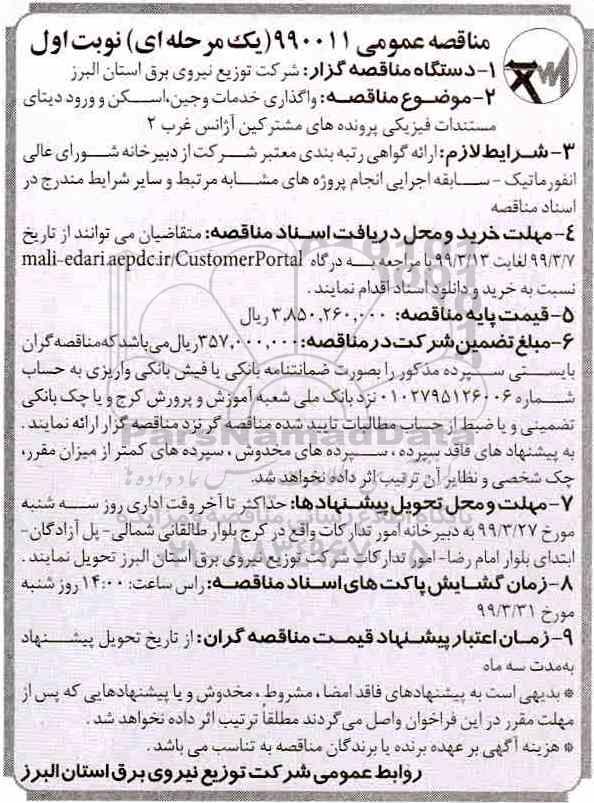 مناقصه عمومی ۹۹۰۰۱۱ (یک مرحله ای) نوبت اول
۱- دستگاه مناقصه گزار: شرکت توزیع نیروی برق استان البرز
۲- موضوع مناقصه: واگذاری خدمات وجین، اسکن و ورود دیتای
مستندات فیزیکی پرونده های مشترکین آژانس غرب ۲
۳- شرایط لازم: ارائه گواهی رتبه بندی معتبر شرکت از دبیرخانه شورای عالی
انفورماتیک - سابقه اجرایی انجام پروژه های مشابه مرتبط و سایر شرایط مندرج در
اسناد مناقصه
۴- مهلت خرید و محل دریافت اسناد مناقصه: متقاضیان می توانند از تاریخ
۹۹/۳/۷ لغایت ۹۹/۳/۱۳ با مراجعه به درگاه mali-edari.aepdc.ir/CustomerPortal
نسبت به خرید و دانلود اسناد اقدام نمایند.
۵- قیمت پایه مناقصه: ۳,۸۵۰,۲۶۰,۰۰۰ ریال
۶- مبلغ تضمین شرکت در مناقصه: ۳۵۷,۰۰۰,۰۰۰ ریال می باشد که مناقصه گران
بایستی سپرده مذکور را بصورت ضمانتنامه بانکی یا فیش بانکی واریزی به حساب
شماره ۰۱۰۲۷۹۵۱۲۶۰۰۶ نزد بانک ملی شعبه آموزش و پرورش کرج و یا چک بانکی
تضمینی و یا ضبط از حساب مطالبات تایید شده مناقصه گر نزد مناقصه گزار ارائه نمایند.
به پیشنهاد های فاقد سپرده، سپرده های مخدوش، سپرده های کمتر از میزان مقرر،
چک شخصی و نظایر آن ترتیب اثر داده نخواهد شد.
۷- مهلت و محل تحویل پیشنهادها: حداکثر تا آخر وقت اداری روز سه شنبه
مورخ ۹۹/۳/۲۷ به دبیرخانه امور تدارکات واقع در کرج بلوار طالقانی شمالی - پل آزادگان -
ابتدای بلوار امام رضا - امور تدارکات شرکت توزیع نیروی برق استان البرز تحویل نمایند.
۸- زمان گشایش پاکت های اسناد مناقصه: راس ساعت: ۱۴:۰۰ روز شنبه
مورخ ۹۹/۳/۳۱
۹- زمان اعتبار پیشنهاد قیمت مناقصه گران: از تاریخ تحویل پیشنهاد
به مدت سه ماه
* بدیهی است به پیشنهادهای فاقد امضا، مشروط، مخدوش و یا پیشنهادهایی که پس از
مهلت مقرر در این فراخوان واصل می گردند مطلقاً ترتیب اثر داده نخواهد شد.
* هزینه آگهی بر عهده برنده یا برندگان مناقصه به تناسب می باشد.
روابط عمومی شرکت توزیع نیروی برق استان البرز
ParsNamadData